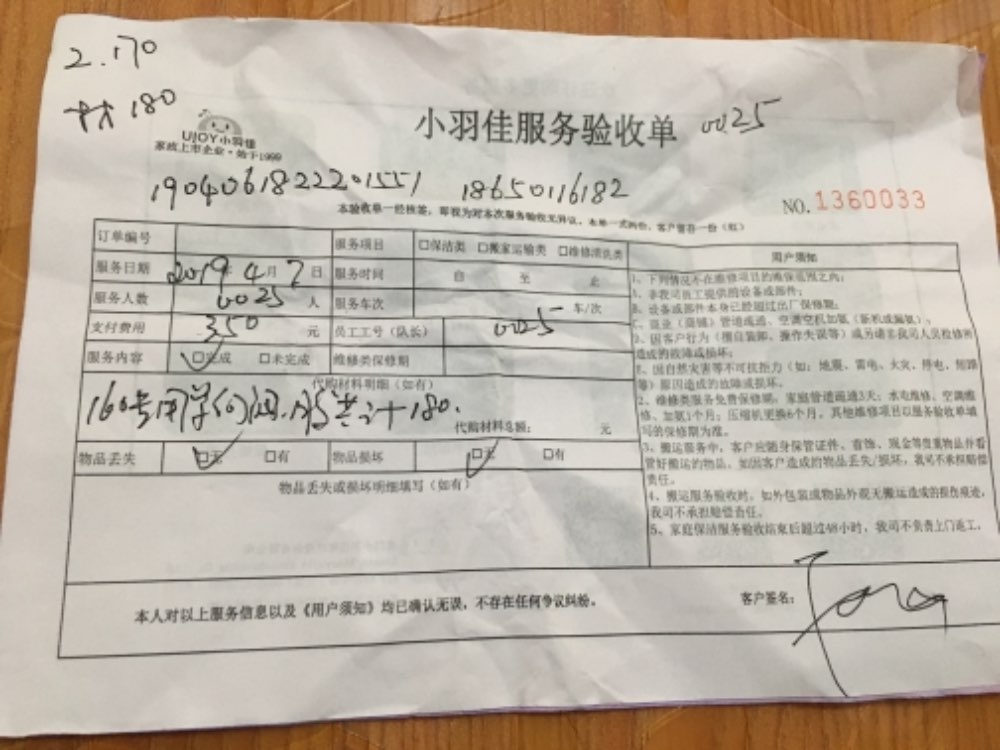 2.170
材 180
UJOY小羽佳
家政上市企业·始于1999
小羽佳服务验收单 0025
1904061822201551 18650116182
NO. 1360033
本验收单一经核签，即视为对本次服务验收无异议，本单一式两份，客户留存一份（红）
订单编号 服务项目 □保洁类 □搬家运输类 □维修清洗类
服务日期 2019年4月7日 服务时间 自 至 止
服务人数 0025 人 服务车次 车/次
支付费用 350 元 员工工号（队长） 0025
服务内容 □完成 □未完成 维修类保修期
代购材料明细（如有）
共计180.
代购材料总额： 元
物品丢失 □无 □有 物品损坏 □无 □有
物品丢失或损坏明细填写（如有）
用户须知
1、下列情况不在维修项目的维保范围之内：
A、非我司员工提供的设备或部件；
B、设备或部件本身已经超过出厂保修期；
C、商业（商铺）管道疏通、空调空机加氨（新机或漏氨）；
D、因客户行为（擅自装卸、操作失误等）或另请非我司人员检修所
造成的故障或损坏；
E、因自然灾害等不可抗拒力（如：地震、雷电、火灾、停电、短路
等）原因造成的故障或损坏。
2、维修类服务免费保修期：家庭管道疏通3天；水电维修、空调维
修、加氨1个月；压缩机更换6个月。其他维修项目以服务验收单填
写的保修期为准。
3、搬运服务中，客户应随身保管证件、首饰、现金等贵重物品并看
管好搬运的物品，如因客户造成的物品丢失/损坏，我司不承担赔偿
责任。
4、搬运服务验收时，如外包装或物品外观无搬运造成的损伤痕迹，
我司不承担赔偿责任。
5、家庭保洁服务验收结束后超过48小时，我司不负责上门返工。
本人对以上服务信息以及《用户须知》均已确认无误，不存在任何争议纠纷。
客户签名：